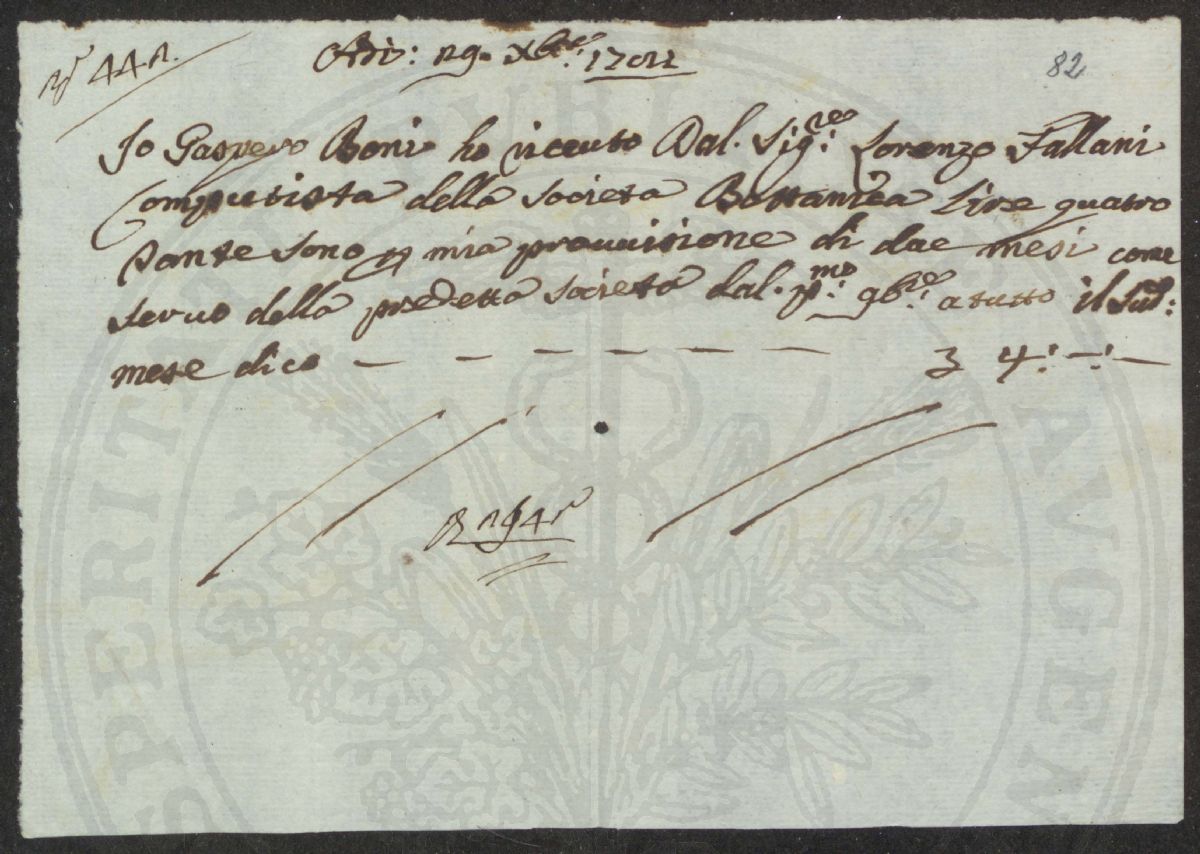 44
Adi: 29. Xbre: 17
82
Io Gaspero Boni ho riceuto Dal. Sigre: Lorenzo Fallani
Computista della Società Bottanica Lire quatro
Tante sono p mia prouuisione di due mesi come
seruo della predetta Società dal. pmo: 9bre: a tutto il Sud:
mese dico — — — — — — — 3 4:—:—
PUBLICAE
PERITATI
AVGEN